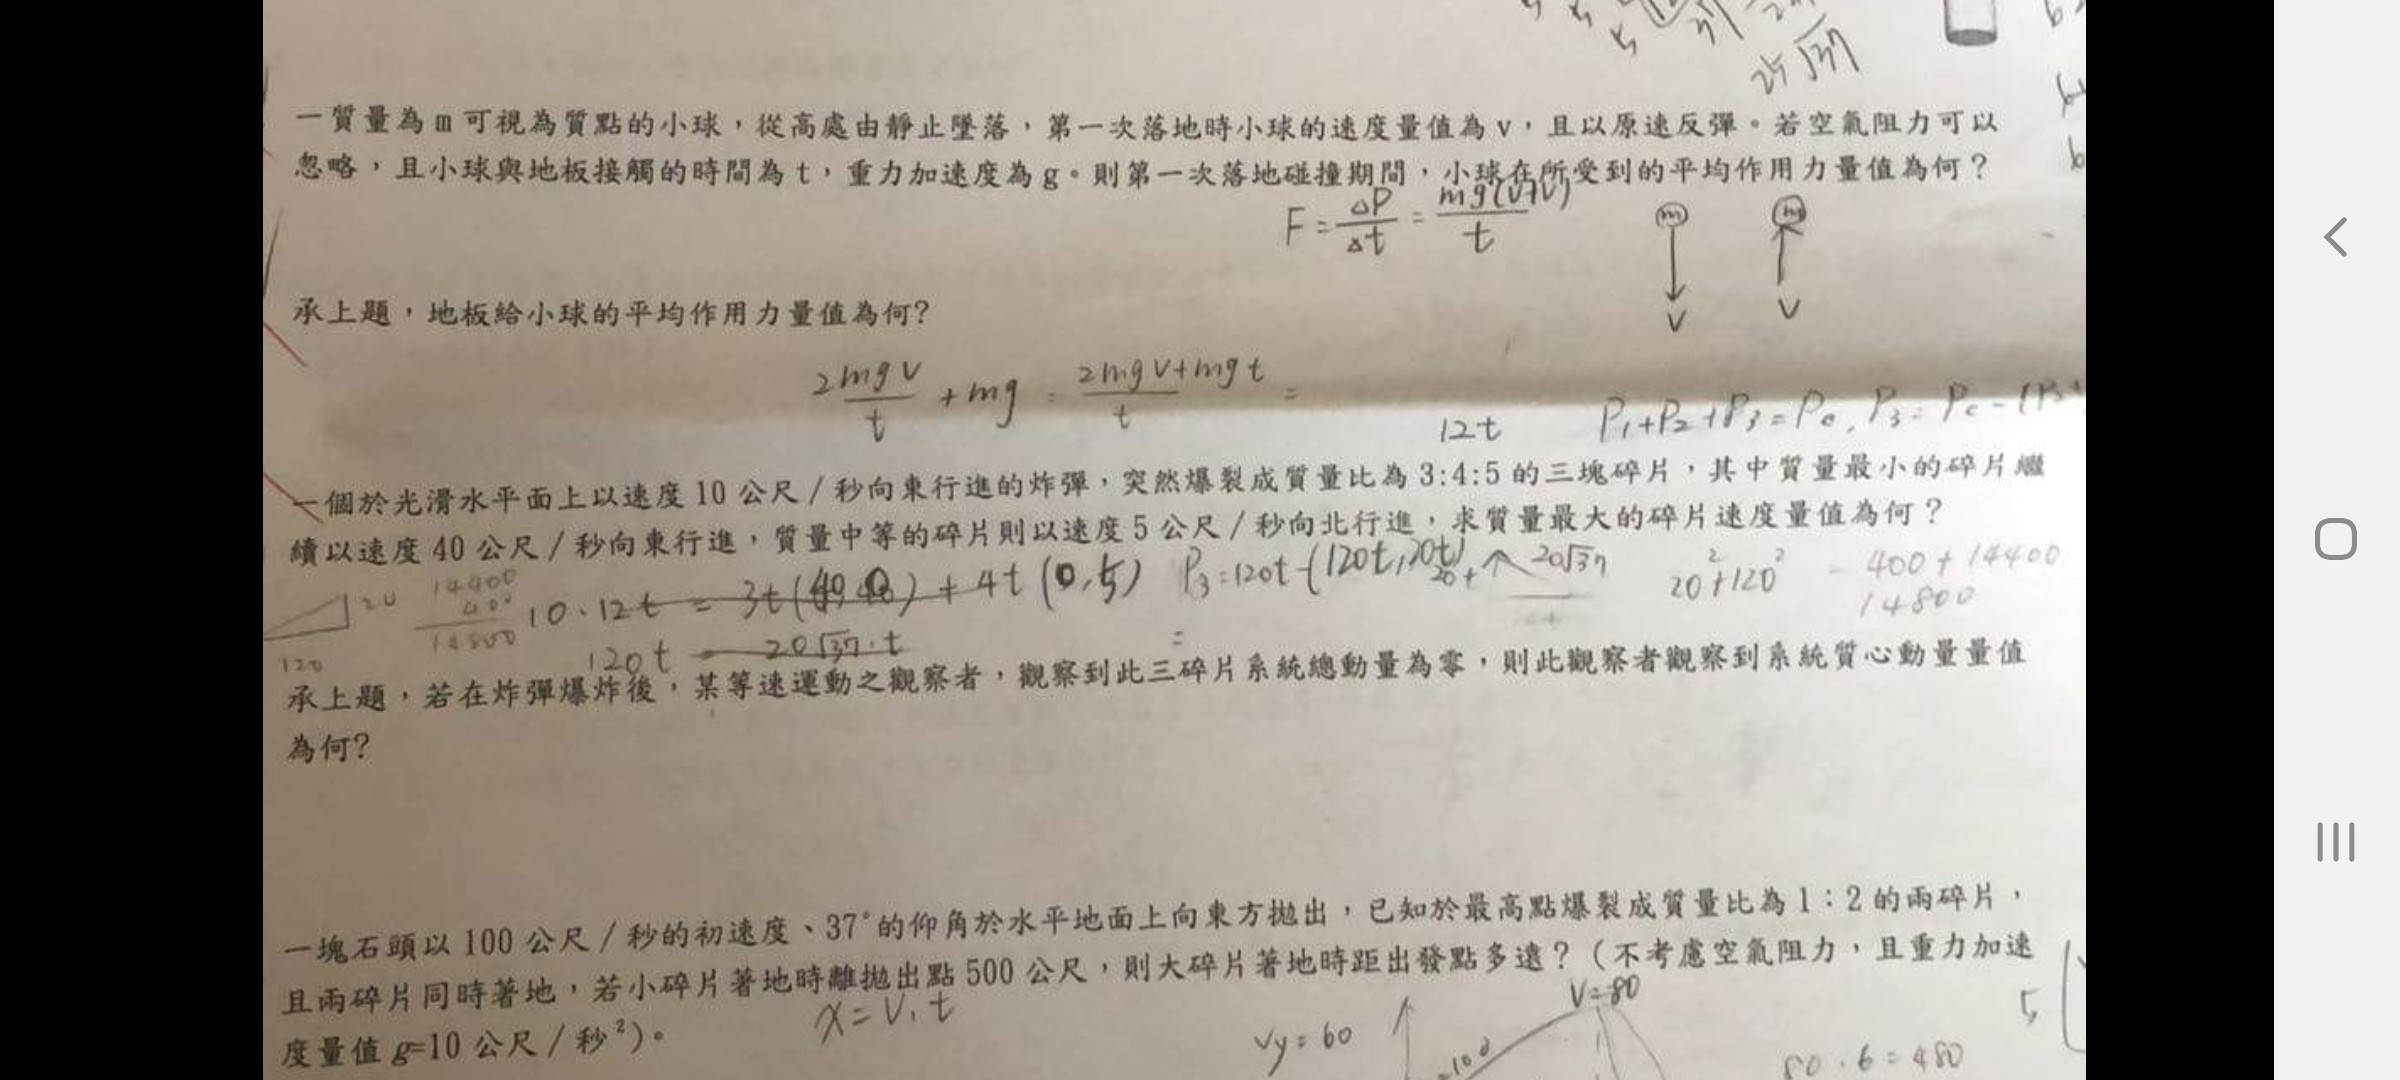 25√37
一質量為 m 可視為質點的小球，從高處由靜止墜落，第一次落地時小球的速度量值為 v，且以原速反彈。若空氣阻力可以
忽略，且小球與地板接觸的時間為 t，重力加速度為 g。則第一次落地碰撞期間，小球在所受到的平均作用力量值為何？
F = ΔP/Δt = mg(v+v)/t
m m
v v
承上題，地板給小球的平均作用力量值為何?
2mgv/t + mg = 2mgv+mgt/t =
12t P₁+P₂+P₃=P₀, P₃=P₀-(P₂+
一個於光滑水平面上以速度 10 公尺／秒向東行進的炸彈，突然爆裂成質量比為 3:4:5 的三塊碎片，其中質量最小的碎片繼
續以速度 40 公尺／秒向東行進，質量中等的碎片則以速度 5 公尺／秒向北行進，求質量最大的碎片速度量值為何？
14400
400
14800
20
120
10·12t = 3t(40,0) + 4t(0,5) P₃=120t-(120t,20t)
20√37 20²+120² 400+14400
14800
120t = 20√37·t
承上題，若在炸彈爆炸後，某等速運動之觀察者，觀察到此三碎片系統總動量為零，則此觀察者觀察到系統質心動量量值
為何?
一塊石頭以 100 公尺／秒的初速度、37°的仰角於水平地面上向東方拋出，已知於最高點爆裂成質量比為 1：2 的兩碎片，
且兩碎片同時著地，若小碎片著地時離拋出點 500 公尺，則大碎片著地時距出發點多遠？（不考慮空氣阻力，且重力加速
度量值 g=10 公尺／秒²）。
x=v₁t
v=80
vy=60
100
80·6=480